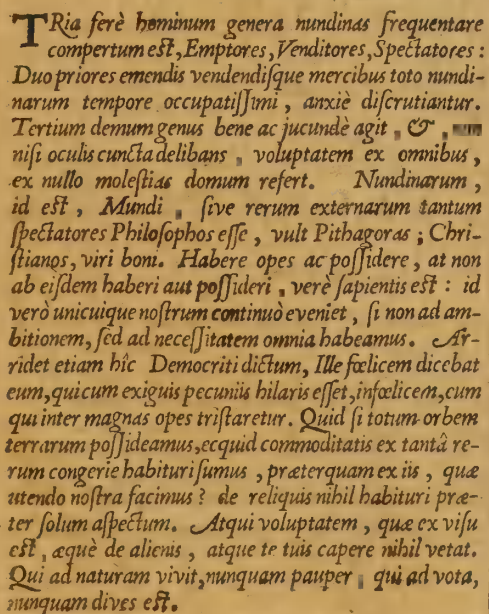 TRia ferè hominum genera nundinas frequentare
compertum est, Emptores, Venditores, Spectatores :
Duo priores emendis vendendiſque mercibus toto nundi-
narum tempore occupatiſſimi , anxiè diſcrutiantur.
Tertium demum genus bene ac jucundè agit , & ,
niſi oculis cuncta delibans , voluptatem ex omnibus ,
ex nullo moleſtias domum refert. Nundinarum ,
id eſt , Mundi , ſive rerum externarum tantum
ſpectatores Philoſophos eſſe , vult Pithagoras ; Chri-
ſtianos, viri boni. Habere opes ac poſſidere , at non
ab eiſdem haberi aut poſſideri , verè ſapientis eſt : id
verò unicuique noſtrum continuò eveniet , ſi non ad am-
bitionem, ſed ad neceſſitatem omnia habeamus. Ar-
ridet etiam hîc Democriti dictum, Ille fœlicem dicebat
eum, qui cum exiguis pecuniis hilaris eſſet, infœlicem, cum
qui inter magnas opes triſtaretur. Quid ſi totum orbem
terrarum poſſideamus, ecquid commoditatis ex tantâ re-
rum congerie habituri ſumus , præterquam ex iis , quæ
utendo noſtra facimus ? de reliquis nihil habituri præ-
ter ſolum aſpectum. Atqui voluptatem , quæ ex viſu
eſt , æquè de alienis , atque te tuis capere nihil vetat.
Qui ad naturam vivit, nunquam pauper , qui ad vota,
nunquam dives eſt.